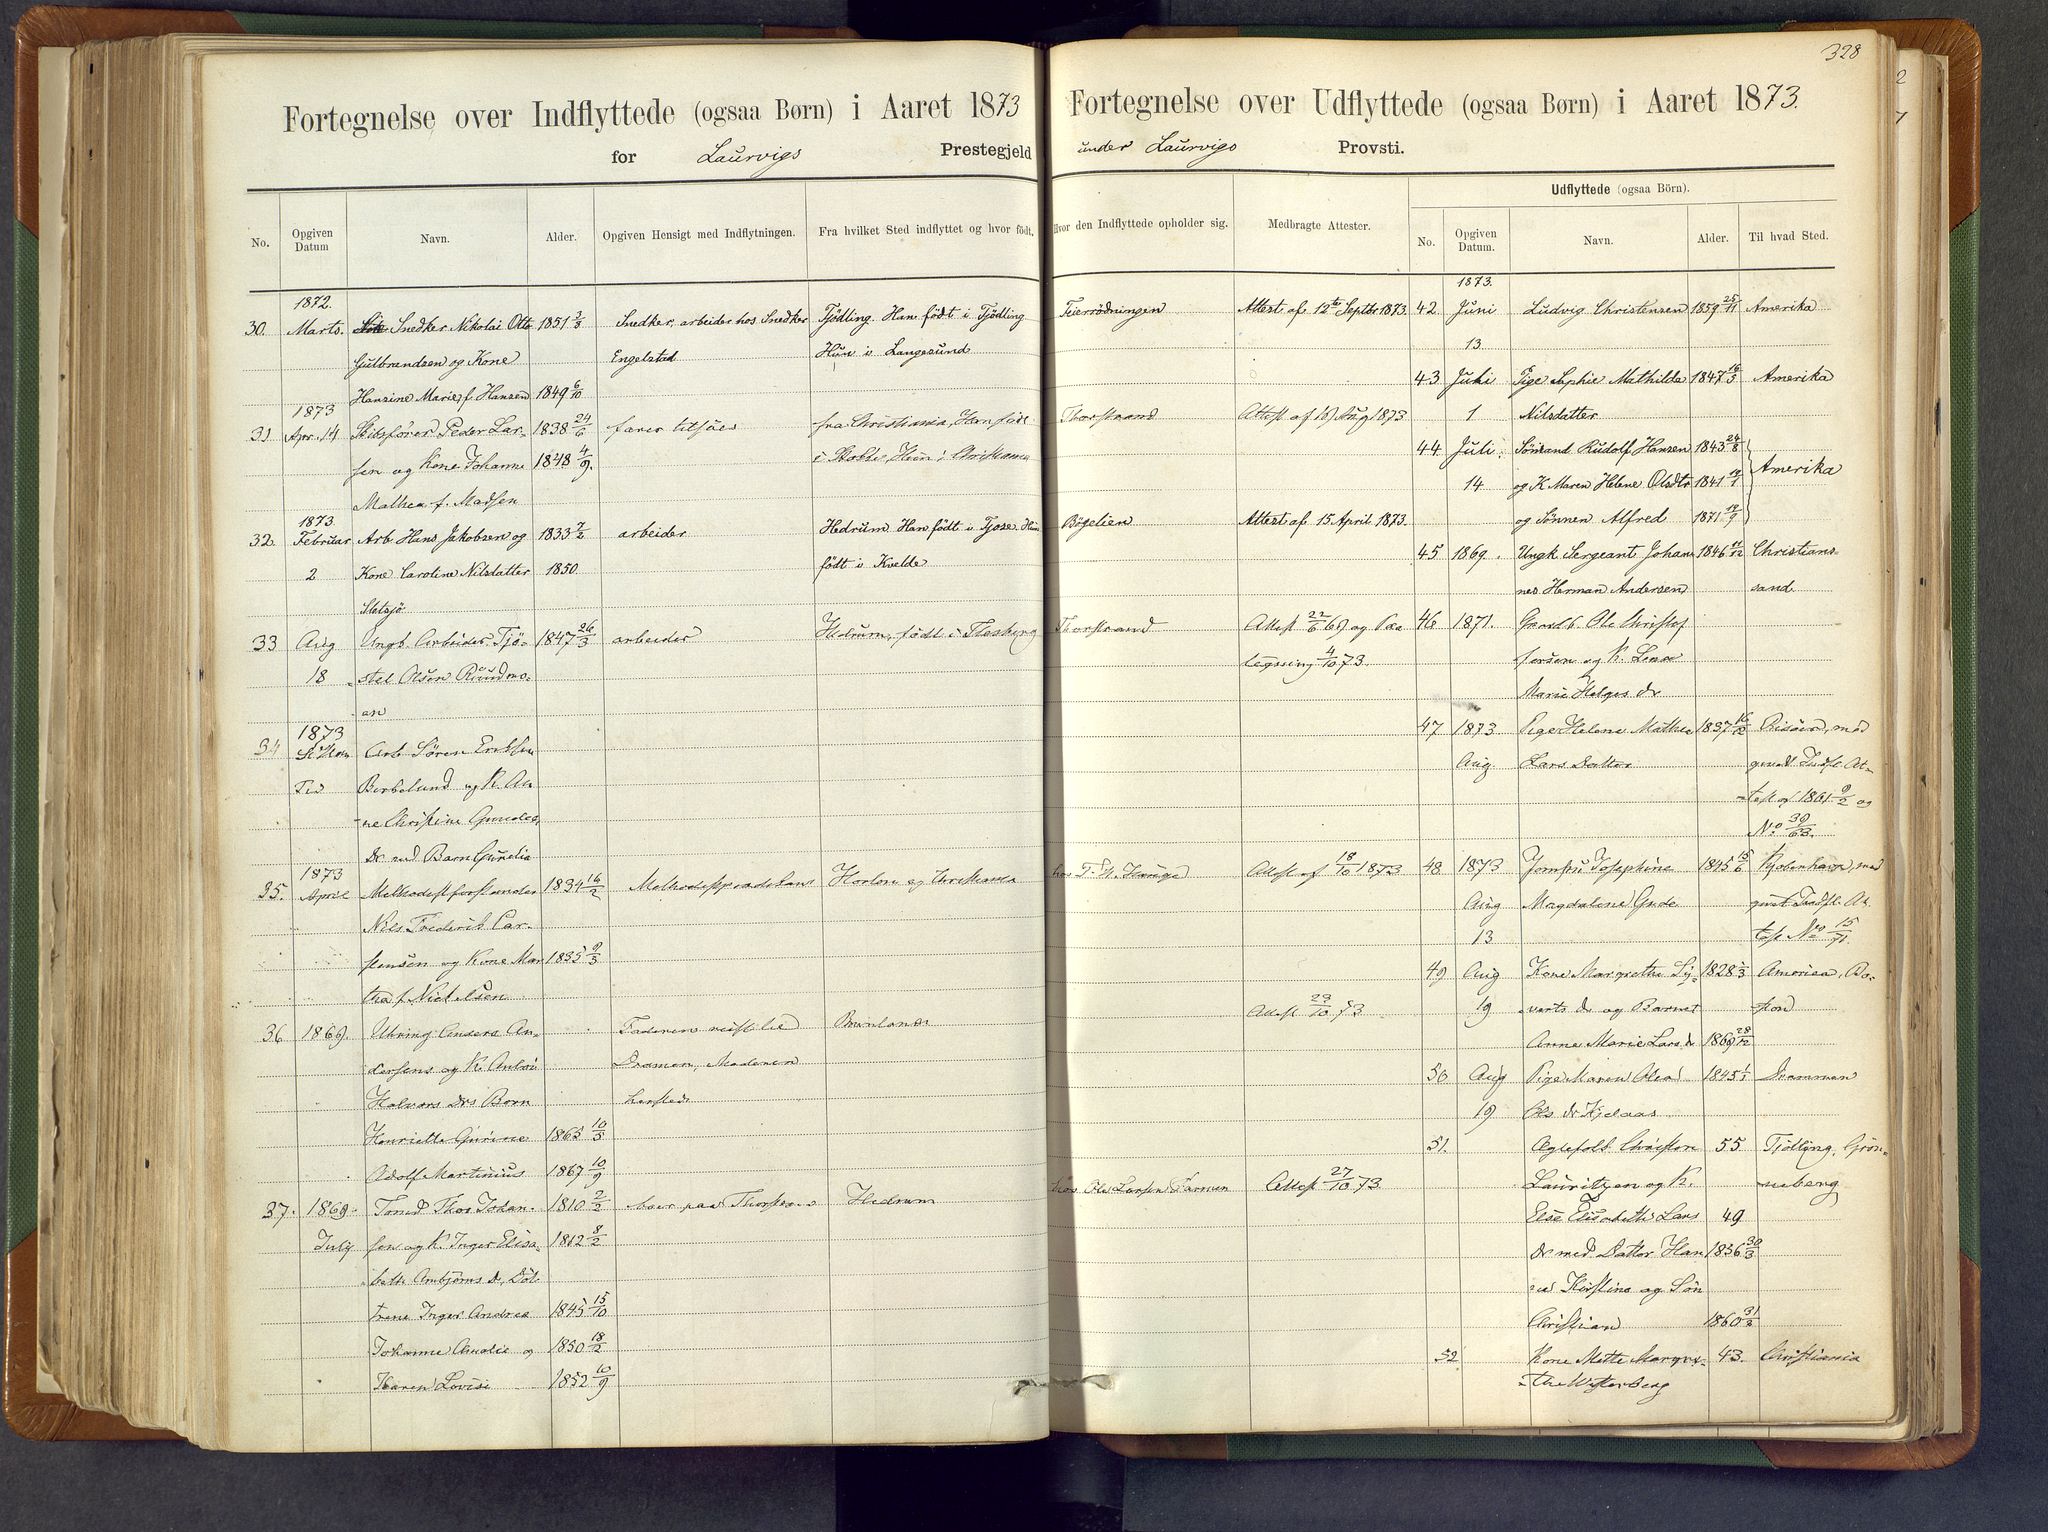 328
Fortegnelse over Indflyttede (ogsaa Børn) i Aaret 1873
for Laurvigs Prestegjeld
No.
Opgiven Datum
Navn.
Alder.
Opgiven Hensigt med Indflytningen.
Fra hvilket Sted indflyttet og hvor født.
1872.
30. Marts. Snedker Nikolai Otto 1851 Snedker, arbeider hos Snedker Tjødling. Han født i Tjødling
Gulbrandsen og Kone Engelstad Hun i Langesund
Hansine Marie f. Hansen 1849 6/10
1873
31 Apr. 14 Skibsfører Peder Lar- 1838 24/6 farer tilsjøes fra Christiania, Han født
sen og Kone Johanne 1848 4/9. i Hun i Christiania
Mathea f. Madsen
1873.
32. Februar Arb. Hans Jakobsen og 1833 7/2 arbeider Hedrum Han født i Tjose Hun
2 Kone Caroline Nilsdatter 1850. født i Kvelde
Sletsjö
33 Aug Ungk. Arbeider Tjö- 1847 26/3 arbeider Hedrum, født i Flesberg
18 stel Olsen
an
1873
34 Arb Sören
Tid og K. An-
ne Christine
dr med Barn
1873
35. April Methodistforstander 1834 16/2 Methodistprædikant Horten og Christiania
Nils Frederik Car-
stensen og Kone Mar 1835 9/3
tha f. Nielsen
36 1869. Anders An- Faderen reist til Brunlanes
dersens og K. Dramen, Moderen
Halvors drs Born
Henriette 1865 10/3
Adolf Martinius 1867 10/9
37. 1869. Thor Johan- 1810 2/2 boer paa Hedrum
July sen og K. Inger Elisa- 1812 8/2
beth Ambjørns dr, Döt
trene Inger Andrea 1845 15/10
Johanne Amalie og 1850 18/2
Karen Lovise 1852 10/9
Fortegnelse over Udflyttede (ogsaa Børn) i Aaret 1873.
under Laurvigs Provsti.
Hvor den Indflyttede opholder sig.
Medbragte Attester.
Udflyttede (ogsaa Börn).
No.
Opgiven Datum.
Navn.
Alder.
Til hvad Sted.
1873.
Feierrødningen Attest af 12te Septbr 1873. 42 Juni Ludvig Christensen 1859 25/11 Amerika
13.
43 Juli Pige Sophie Mathilda 1847 16/3 Amerika
Thorstrand Attest af Aug 1873 1 Nilsdatter
44 Juli Sömand Rudolf Hansen 1843 24/8
14 og K Maren Helene Olsdtr 1841 Amerika
Bøgelien Attest af 15 April 1873. og Sönnen Alfred 1871
45 1869. Ungk Sergeant Johan- 1846 11/12 Christians-
nes Herman Andersen sand.
Thorstrand Attest 22/6 og Paa 46 1871. Ole Christof
tegning 4/10 73. fersen og K.
Marie Helges dr
47 1873 Pige Helene Mathea 1837 16/12 Risöer, med
Aug Lars Datter Indfl At-
test af 1861 9/2 og
No 39/63.
hos Attest af 18/10 1873 48 1873 Jomfru Josephine 1845 15/6 Kjøbenhavn, med
Aug Magdalene Gude Indfl. At
13 test No 15/71.
49 Aug Kone Margrethe Sy- 1828 Amerika, Bo-
Attest 23/10 73. 19 verts dr og Barnet ston
Anne Marie Lars dr 1869 28/12
50 Aug Pige Maren Olea 1845 1/1 Drammen
19 Ols dr
51. Christen 55 Tjölling, Grön-
hos Ole Larsen Attest 27/10 73. Lauritzen og K. neberg
Else Elisabeth Lars 49
dr med Datter Han 1856 30/3
Kirstine og Søn
Christian 1860 31/2
52 Kone Mette Margre- 43. Christiania
the Westerberg